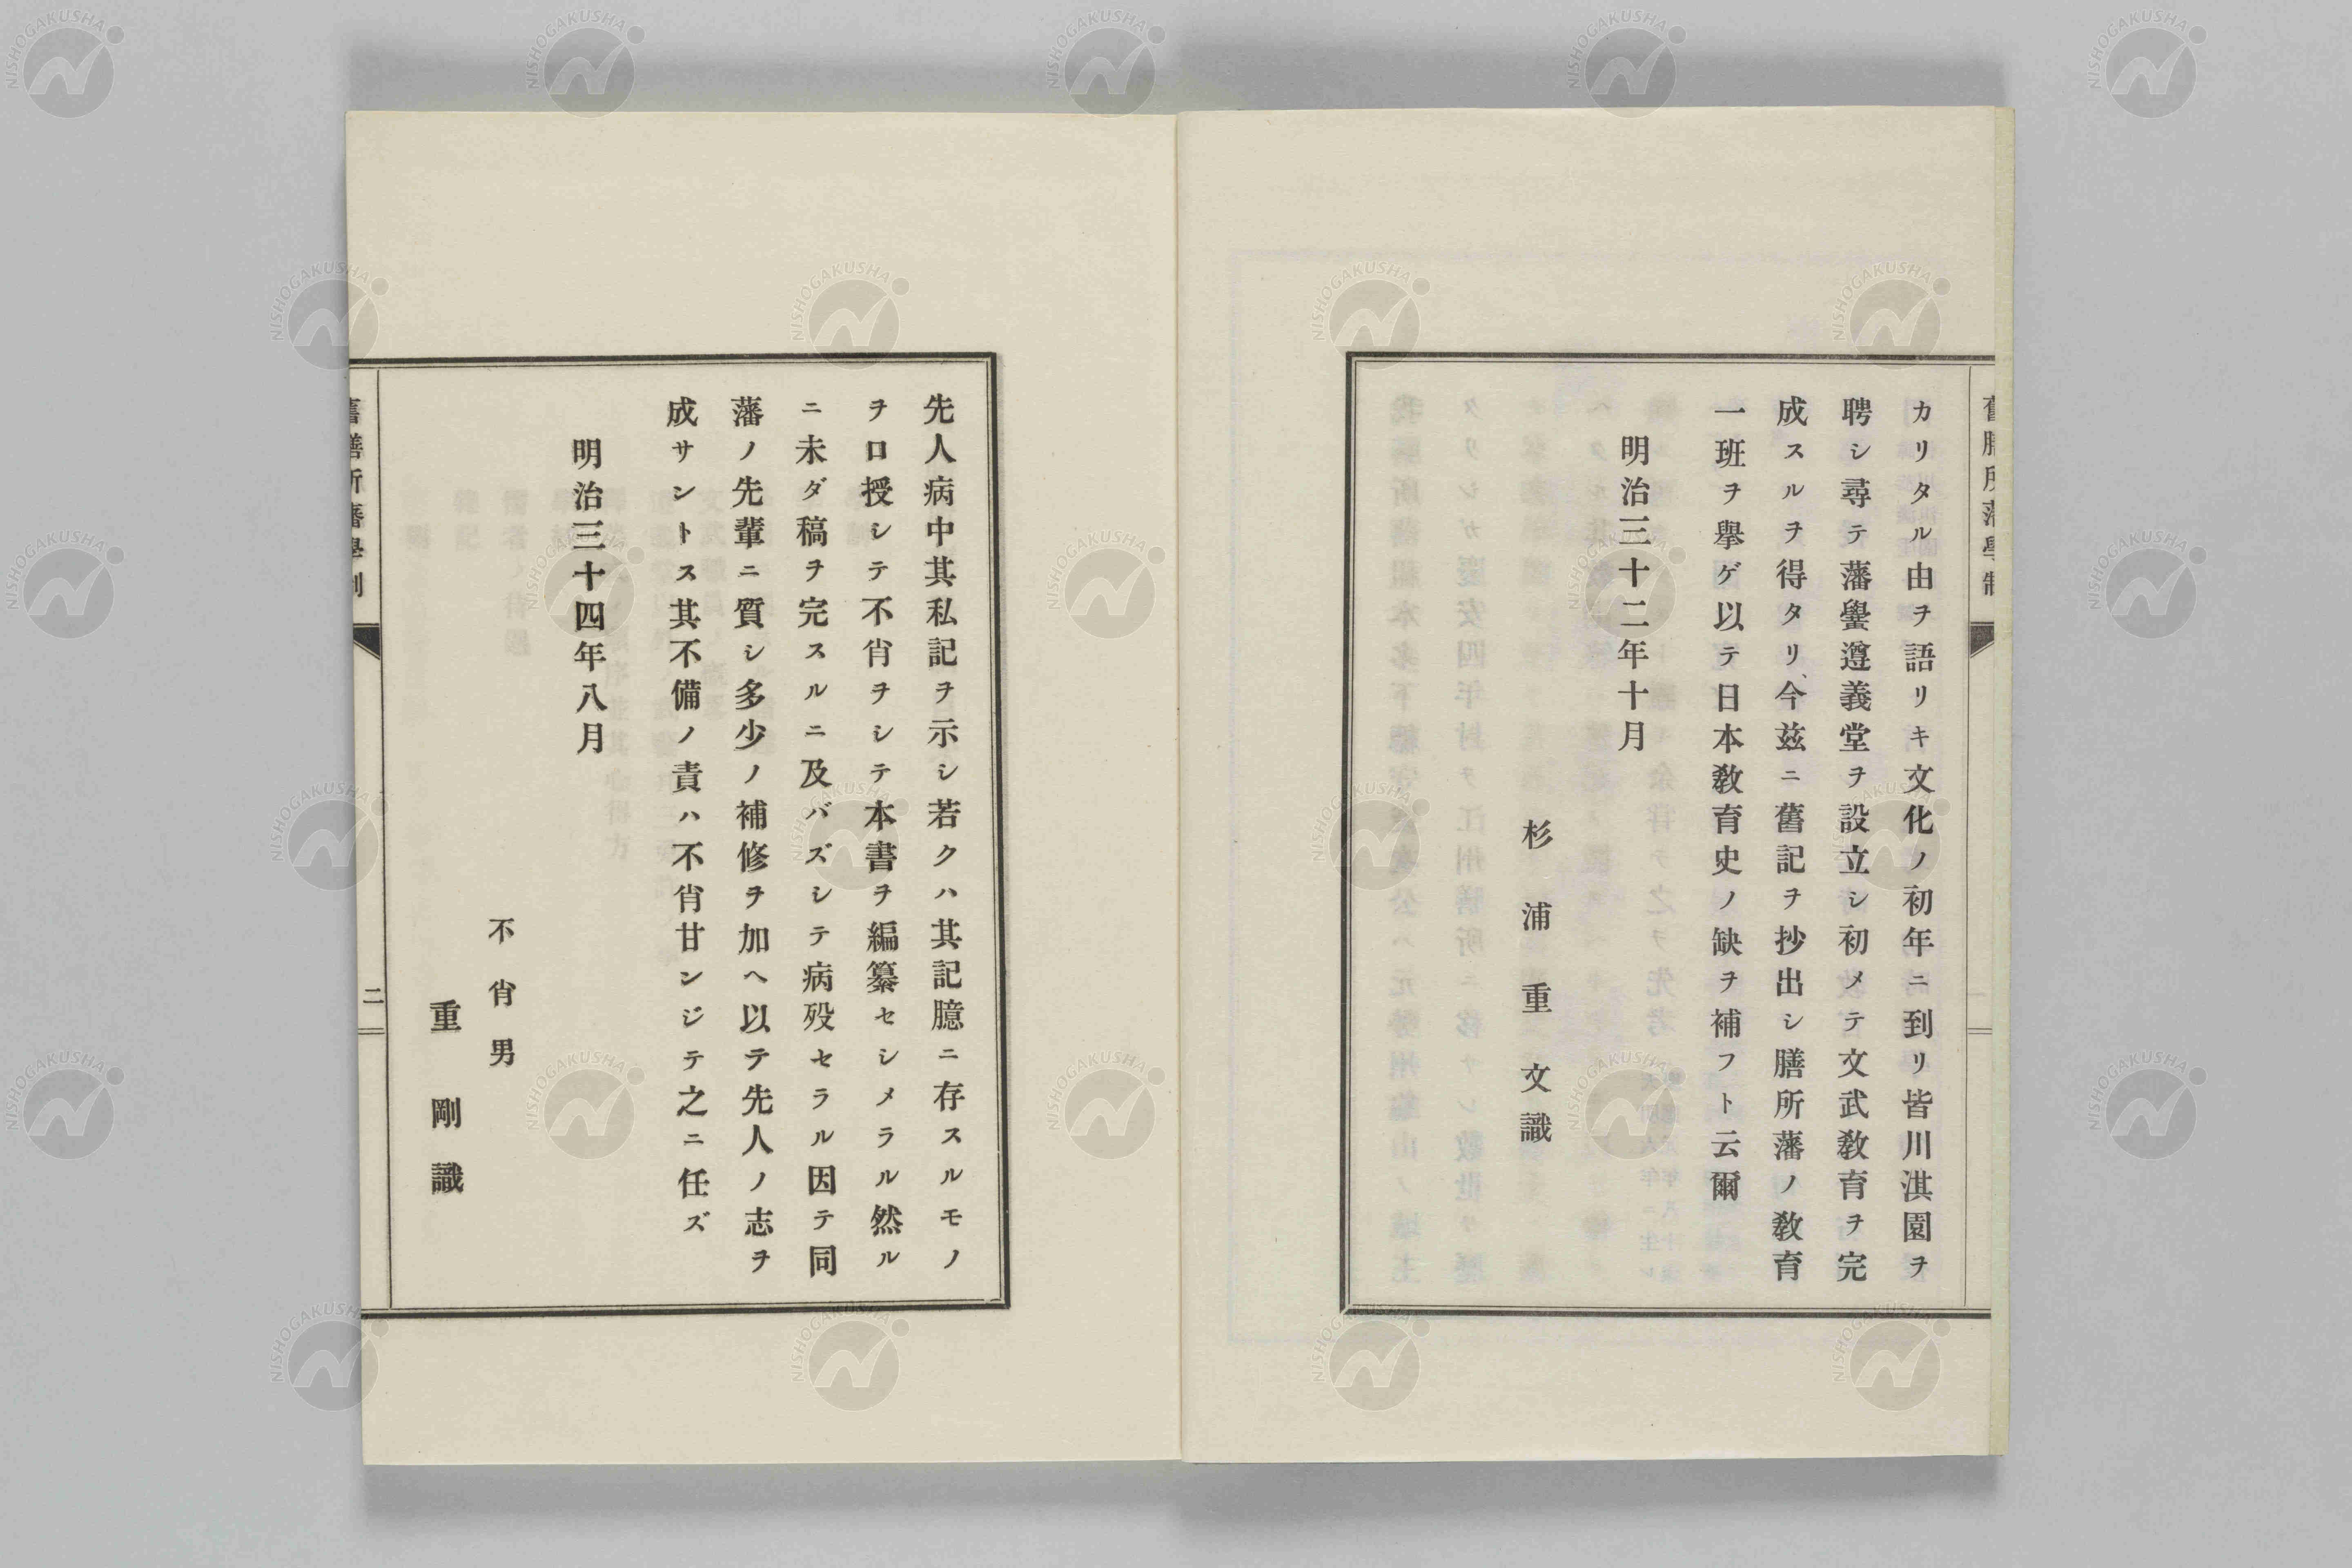 カリタル由ヲ語リキ文化ノ初年ニ到リ皆川淇園ヲ
聘シ尋テ藩黌遵義堂ヲ設立シ初メテ文武敎育ヲ完
成スルヲ得タリ、今玆ニ舊記ヲ抄出シ膳所藩ノ敎育
一班ヲ擧ゲ以テ日本敎育史ノ缺ヲ補フト云爾
明治三十二年十月
杉浦重文識
先人病中其私記ヲ示シ若クハ其記臆ニ存スルモノ
ヲ口授シテ不肖ヲシテ本書ヲ編纂セシメラル然ル
ニ未ダ稿ヲ完スルニ及バズシテ病歿セラル因テ同
藩ノ先輩ニ質シ多少ノ補修ヲ加ヘ以テ先人ノ志ヲ
成サントス其不備ノ責ハ不肖甘ンジテ之ニ任ズ
明治三十四年八月
不肖男
重剛識
舊膳所藩學制
二
NISHOGAKUSHA